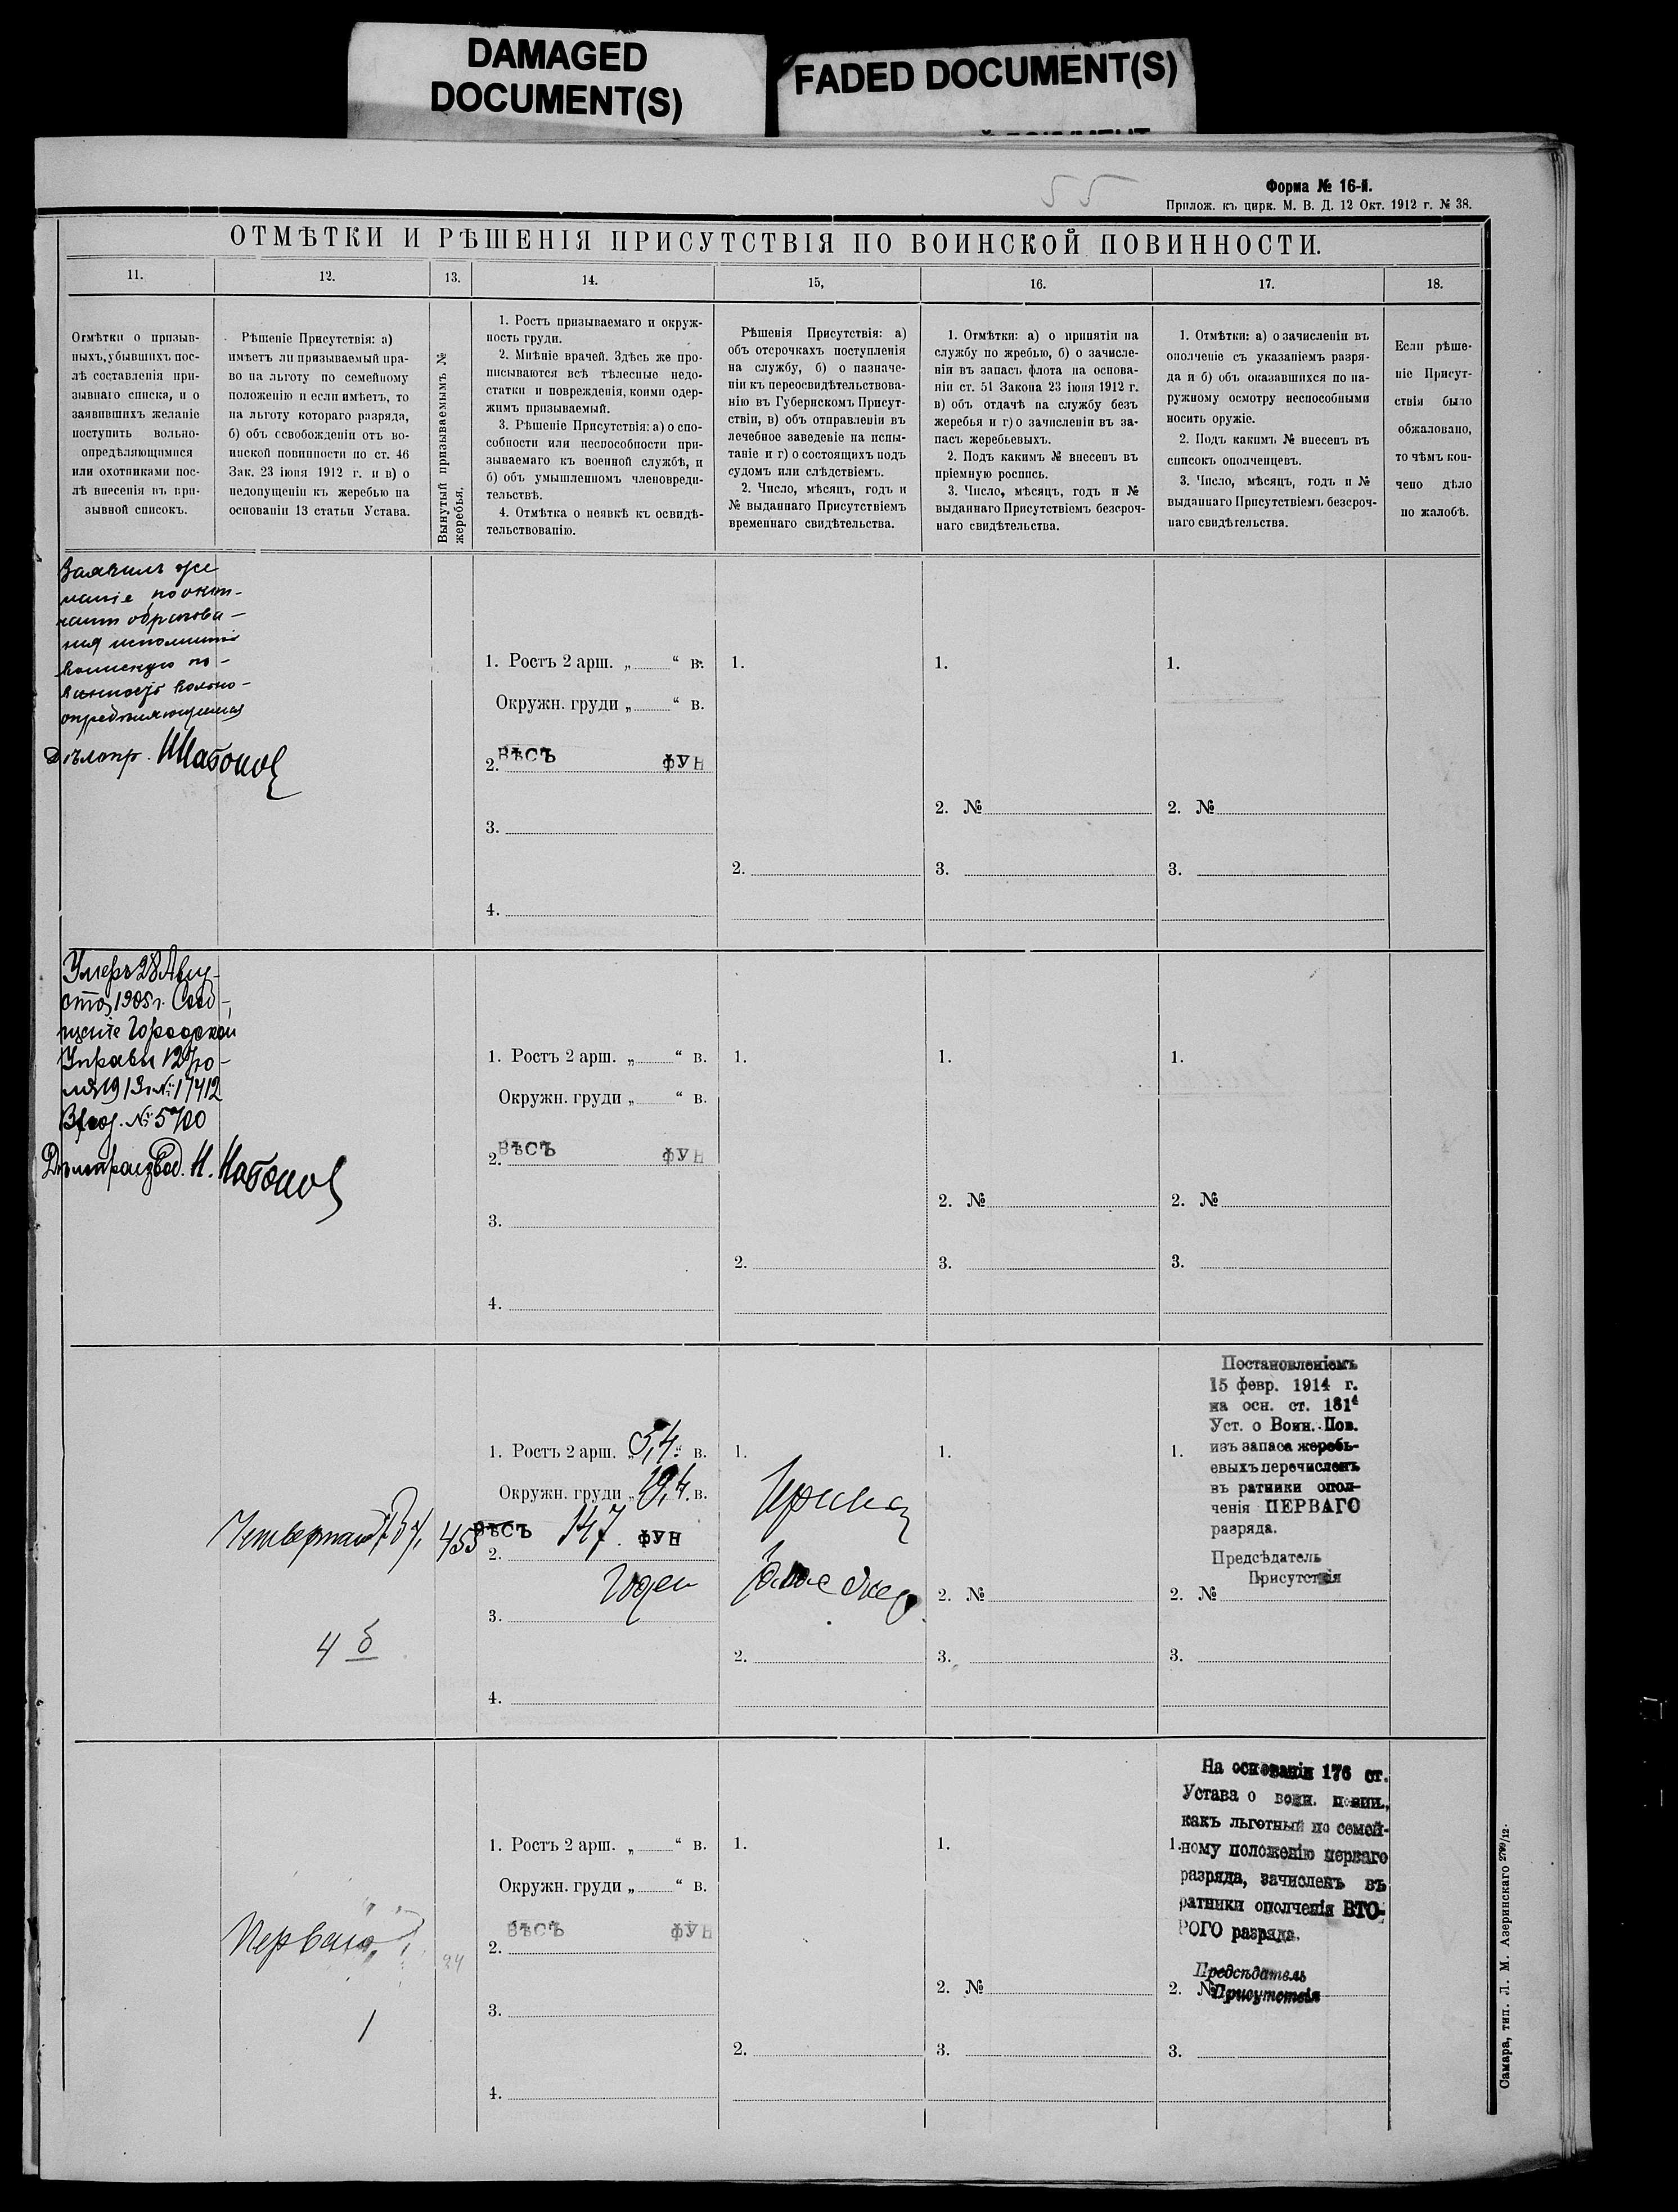 DAMAGED
DOCUMENT(S)
FADED DOCUMENT(S)
55
Форма № 16-й.
Прилож. къ цирк. М. В. Д. 12 Окт. 1912 г. № 38.
ОТМѢТКИ И РѢШЕНІЯ ПРИСУТСТВІЯ ПО ВОИНСКОЙ ПОВИННОСТИ.
11.
12.
13.
14.
15,
16.
17.
18.
Отмѣтки о призыв-
ныхъ, убывшихъ пос-
лѣ составленія при-
зывнаго списка, и о
заявившихъ желаніе
поступить вольно-
опредѣляющимися
или охотниками пос-
лѣ внесенія въ при-
зывной списокъ.
Рѣшеніе Присутствія: а)
имѣетъ ли призываемый пра-
во на льготу по семейному
положенію и если имѣетъ, то
на льготу котораго разряда,
б) объ освобожденіи отъ во-
инской повинности по ст. 46
Зак. 23 іюня 1912 г. и в) о
недопущеніи къ жеребью на
основаніи 13 статьи Устава.
Вынутый призываемымъ №
жеребья.
1. Ростъ призываемаго и окруж-
ность груди.
2. Мнѣніе врачей. Здѣсь же про-
писываются всѣ тѣлесные недо-
статки и поврежденія, коими одер-
жимъ призываемый.
3. Рѣшеніе Присутствія: а) о спо-
собности или неспособности при-
зываемаго къ военной службѣ, и
б) объ умышленномъ членовреди-
тельствѣ.
4. Отмѣтка о неявкѣ къ освидѣ-
тельствованію.
Рѣшенія Присутствія: а)
объ отсрочкахъ поступленія
на службу, б) о назначе-
ніи къ переосвидѣтельствова-
нію въ Губернскомъ Присут-
ствіи, в) объ отправленіи въ
лечебное заведеніе на испы-
таніе и г) о состоящихъ подъ
судомъ или слѣдствіемъ.
2. Число, мѣсяцъ, годъ и
№ выданнаго Присутствіемъ
временнаго свидѣтельства.
1. Отмѣтки: а) о принятіи на
службу по жребью, б) о зачисле-
ніи въ запасъ флота на основа-
ніи ст. 51 Закона 23 іюня 1912 г.
в) объ отдачѣ на службу безъ
жеребья и г) о зачисленіи въ за-
пасъ жеребьевыхъ.
2. Подъ какимъ № внесенъ въ
пріемную роспись.
3. Число, мѣсяцъ, годъ и №
выданнаго Присутствіемъ безсроч-
наго свидѣтельства.
1. Отмѣтки: а) о зачисленіи въ
ополченіе съ указаніемъ разря-
да и б) объ оказавшихся по на-
ружному осмотру неспособными
носить оружіе.
2. Подъ какимъ № внесенъ въ
списокъ ополченцевъ.
3. Число, мѣсяцъ, годъ и №
выданнаго Присутствіемъ безсроч-
наго свидѣтельства.
Если рѣше-
ніе Присут-
ствія было
обжаловано,
то чѣмъ кон-
чено дѣло
по жалобѣ.
Заявилъ же
ланіе по окон-
чаніи образова-
нія исполнить
воинскую по-
винность вольно-
опредѣляющимся
Дѣлопр.
1. Ростъ 2 арш. „ “ в.
Окружн. груди „ “ в.
ВѢСЪ ФУН
2.
3.
4.
1.
2.
1.
2. №
3.
1.
2. №
3.
Умеръ 28 Авгу-
ста 1905 г. Сооб-
щеніе Городской
Управы 12 Ію-
ля 1913 г. № 17412
Вход. № 5700
Дѣлопроизвод.
1. Ростъ 2 арш. „ “ в.
Окружн. груди „ “ в.
ВѢСЪ ФУН
2.
3.
4.
1.
2.
1.
2. №
3.
1.
2. №
3.
455
4 б
1. Ростъ 2 арш. „ 5,4 “ в.
Окружн. груди „ 19,4 в.
ВѢСЪ 147 ФУН
2.
Годен
3.
4.
1.
2.
1.
2. №
3.
Постановленіемъ
15 февр. 1914 г.
на осн. ст. 181⁴
Уст. о Воин. Пов.
1. изъ запаса жеребь-
евыхъ перечисленъ
въ ратники опол-
ченія ПЕРВАГО
разряда.
Предсѣдатель
Присутствія
2. №
3.
Перваго
24
1
1. Ростъ 2 арш. „ “ в.
Окружн. груди „ “ в.
ВѢСЪ ФУН
2.
3.
4.
1.
2.
1.
2. №
3.
На основаніи 176 ст.
Устава о воин. повин.,
какъ льготный по семей-
1. ному положенію перваго
разряда, зачисленъ въ
ратники ополченія ВТО-
РОГО разряда.
Предсѣдатель
2. № Присутствія
3.
Самара, тип. Л. М. Азеринскаго 2799/12.